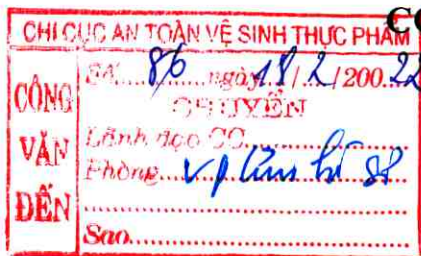 CHI CỤC AN TOÀN VỆ SINH THỰC PHẨM
CÔNG VĂN ĐẾN
Số.....86.....ngày.18./.2./200.22
CHUYỂN
Lãnh đạo CC
Phòng
Sao